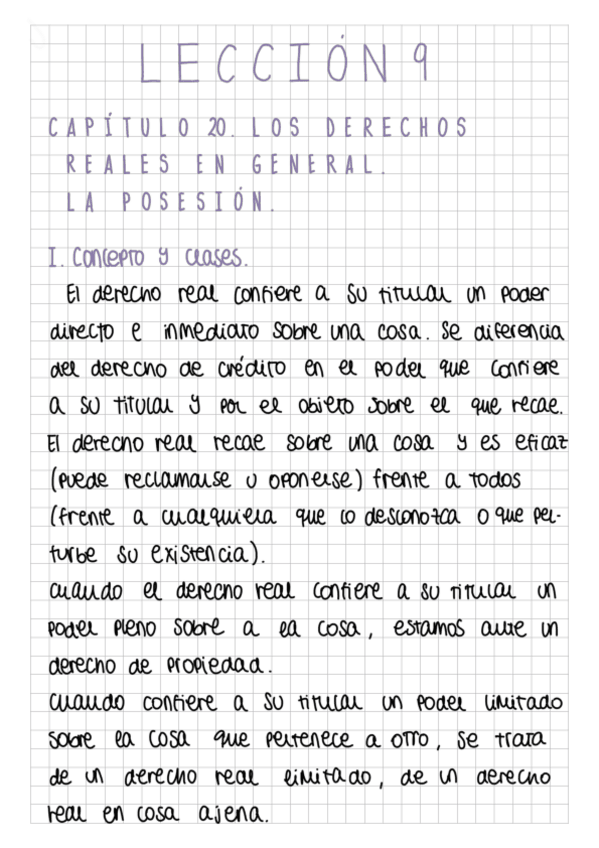 LECCIÓN 9
CAPÍTULO 20. LOS DERECHOS
REALES EN GENERAL.
LA POSESIÓN.
I. Concepto y clases.
El derecho real confiere a su titular un poder
directo e inmediato sobre una cosa. Se diferencia
del derecho de crédito en el poder que confiere
a su titular y por el objeto sobre el que recae.
El derecho real recae sobre una cosa y es eficaz
(puede reclamarse u oponerse) frente a todos
(frente a cualquiera que lo desconozca o que per-
turbe su existencia).
Cuando el derecho real confiere a su titular un
poder pleno sobre a la cosa, estamos ante un
derecho de propiedad.
Cuando confiere a su titular un poder limitado
sobre la cosa que pertenece a otro, se trata
de un derecho real limitado, de un derecho
real en cosa ajena.